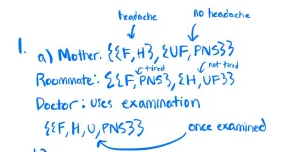 headache no headache
1. a) Mother: {{F, H}, {UF, PNS}}
tired not tired
Roommate: {{F, PNS}, {H, UF}}
Doctor: uses examination
{{F, H, U, PNS}} once examined